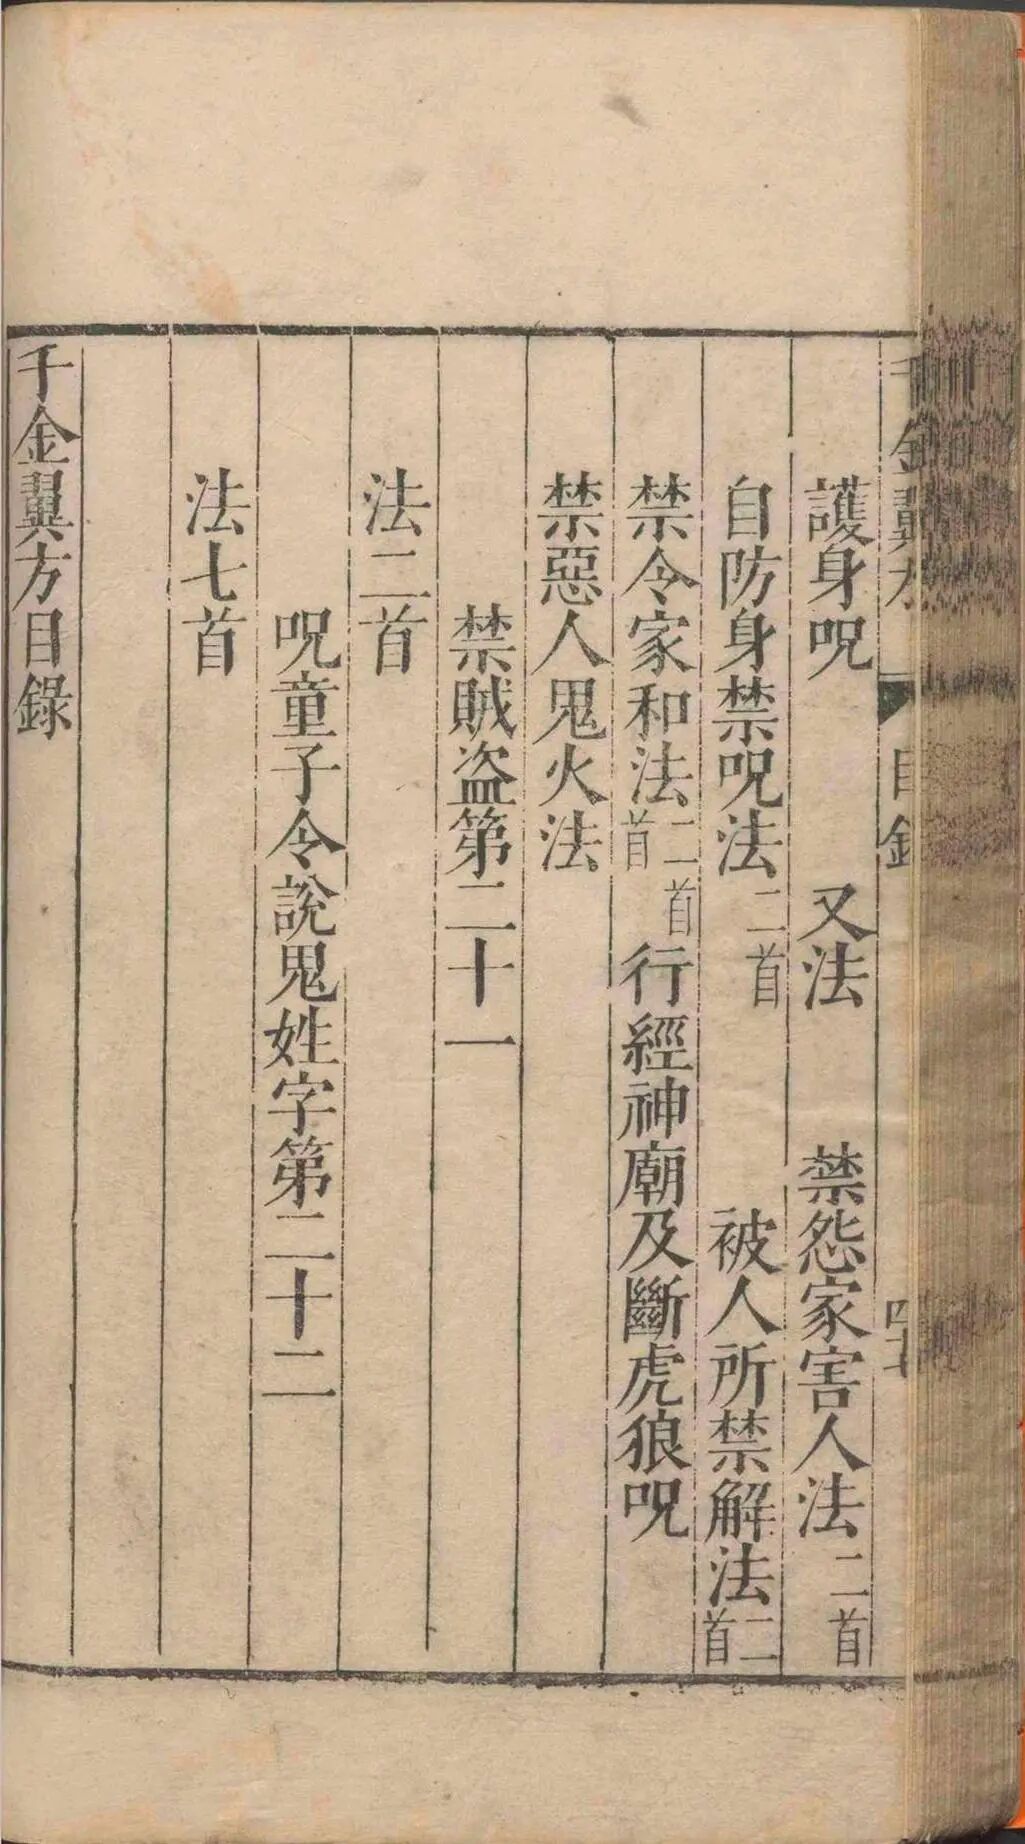 千金翼方 目錄
護身呪 又法 禁怨家害人法二首
自防身禁呪法二首 被人所禁解法二首
禁令家和法二首首 行經神廟及斷虎狼呪
禁惡人鬼火法
禁賊盗第二十一
法二首
呪童子令說鬼姓字第二十二
法七首
千金翼方目錄